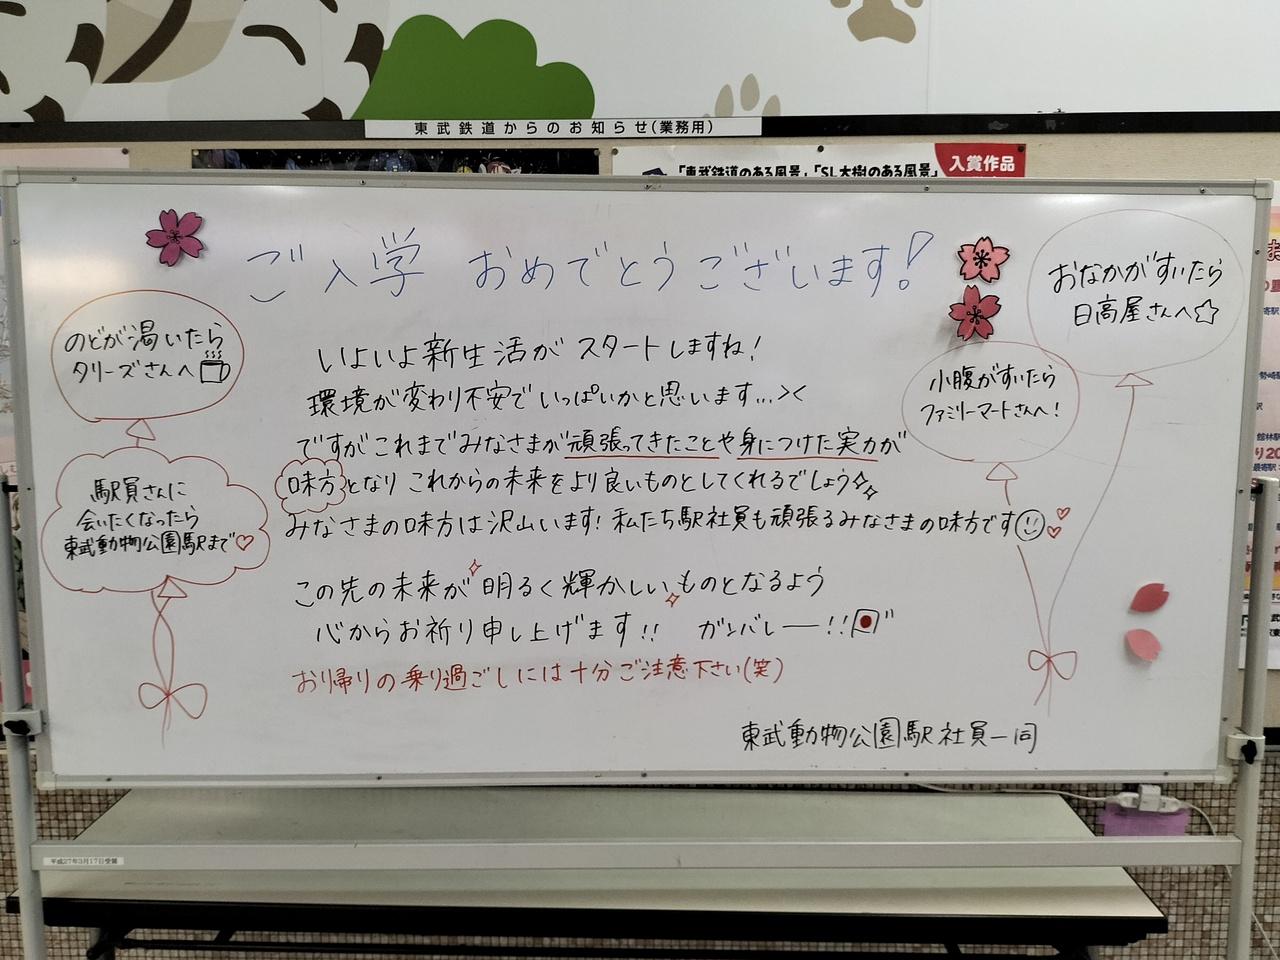 東武鉄道からのお知らせ(業務用)
「東武鉄道のある風景」、「SL大樹のある風景」
入賞作品
ご入学 おめでとうございます!
のどが渇いたら
タリーズさんへ
駅員さんに
会いたくなったら
東武動物公園駅まで♡
いよいよ新生活が スタートしますね!
環境が変わり不安でいっぱいかと思います...><
ですがこれまでみなさまが頑張ってきたことや身につけた実力が
味方となり これからの未来をより良いものとしてくれるでしょう
みなさまの味方は沢山います! 私たち駅社員も頑張るみなさまの味方です
この先の未来が明るく輝かしいものとなるよう
心からお祈り申し上げます!! ガンバレー!!
お帰りの乗り過ごしには十分ご注意下さい(笑)
東武動物公園駅社員一同
小腹がすいたら
ファミリーマートさんへ!
おなかがすいたら
日高屋さんへ☆
平成27年3月17日受領